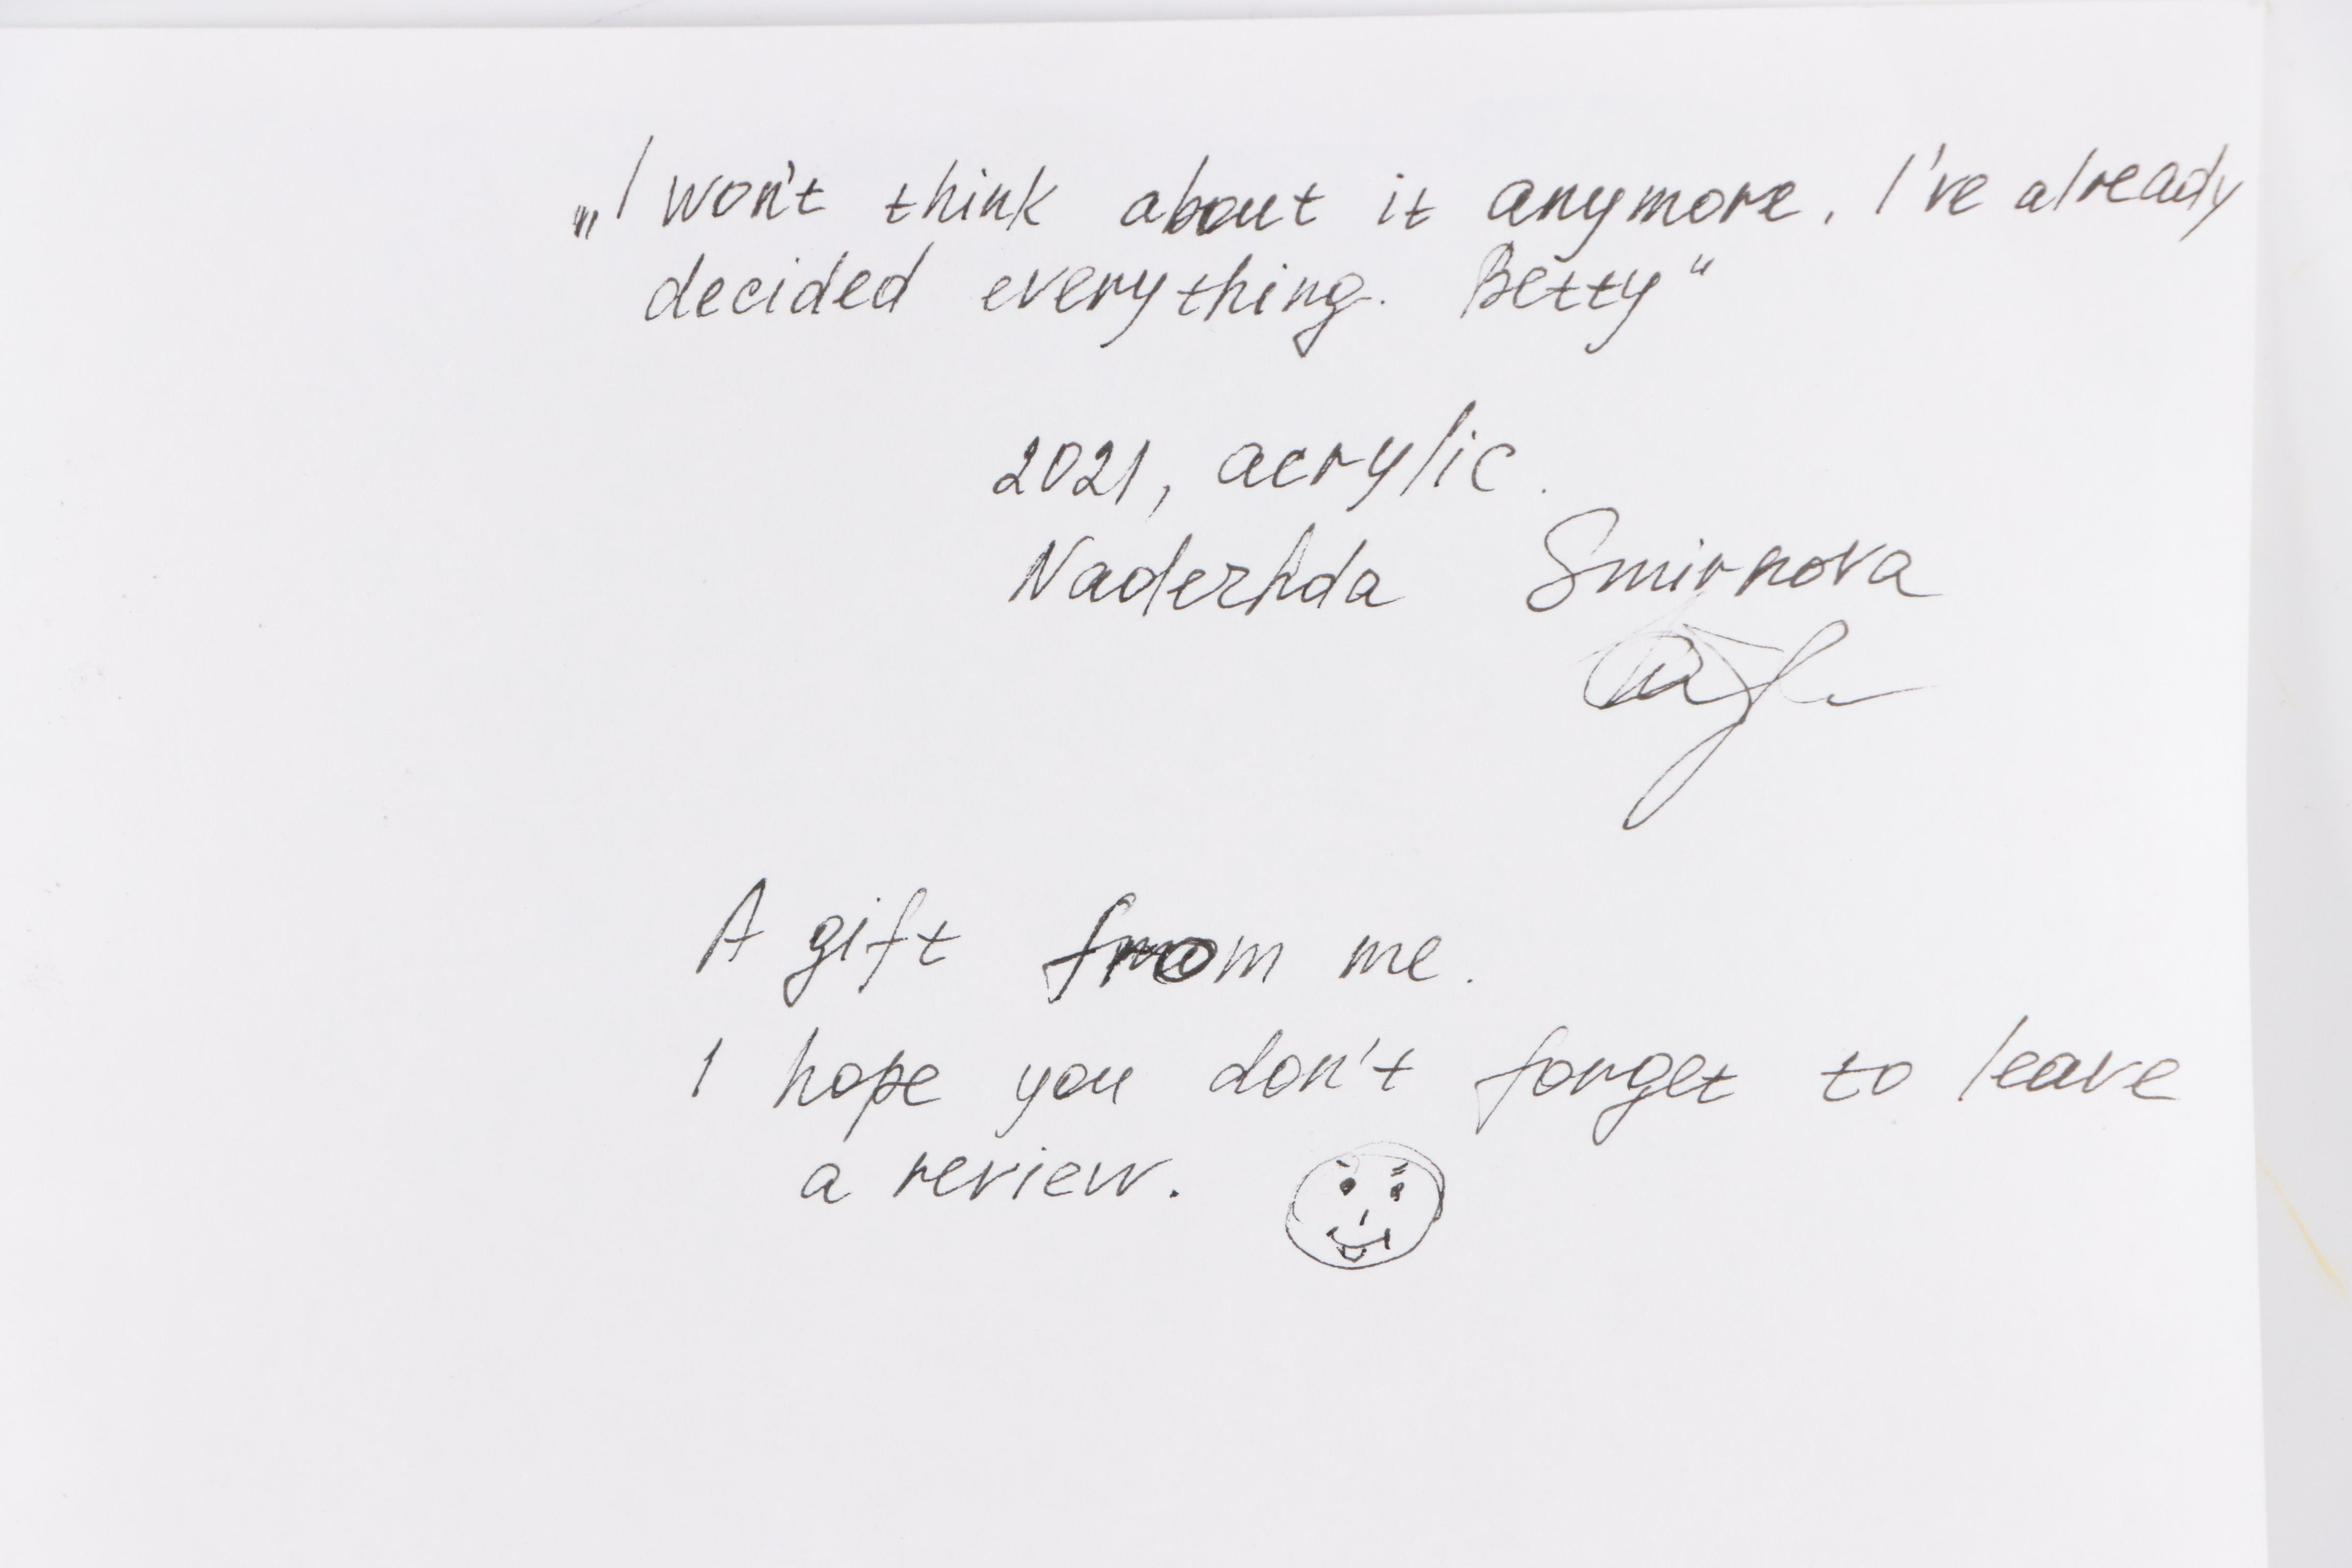 „I won't think about it anymore. I've already
decided everything. Betty“
2021, acrylic.
Naderhda Smirnova
A gift from me.
I hope you don't forget to leave
a review.